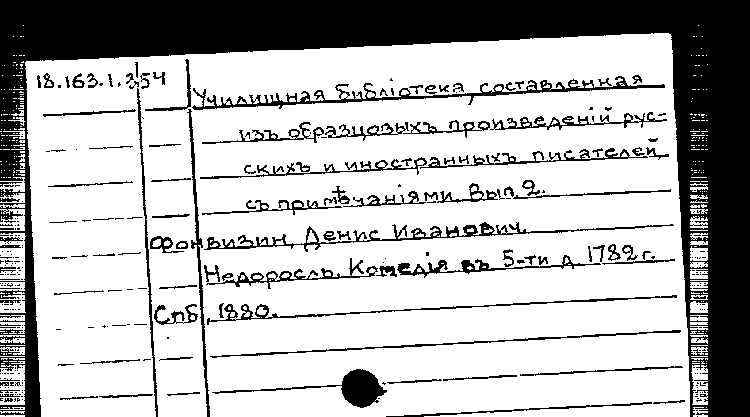 18.163.1.354
Училищная библіотека, составленная
изъ образцовыхъ произведеній рус=
скихъ и иностранныхъ писателей,
съ примѣчаніями. Вып. 2.
Фонвизин, Денис Иванович.
Недоросль. Комедія въ 5-ти д. 1782 г.
Спб., 1880.